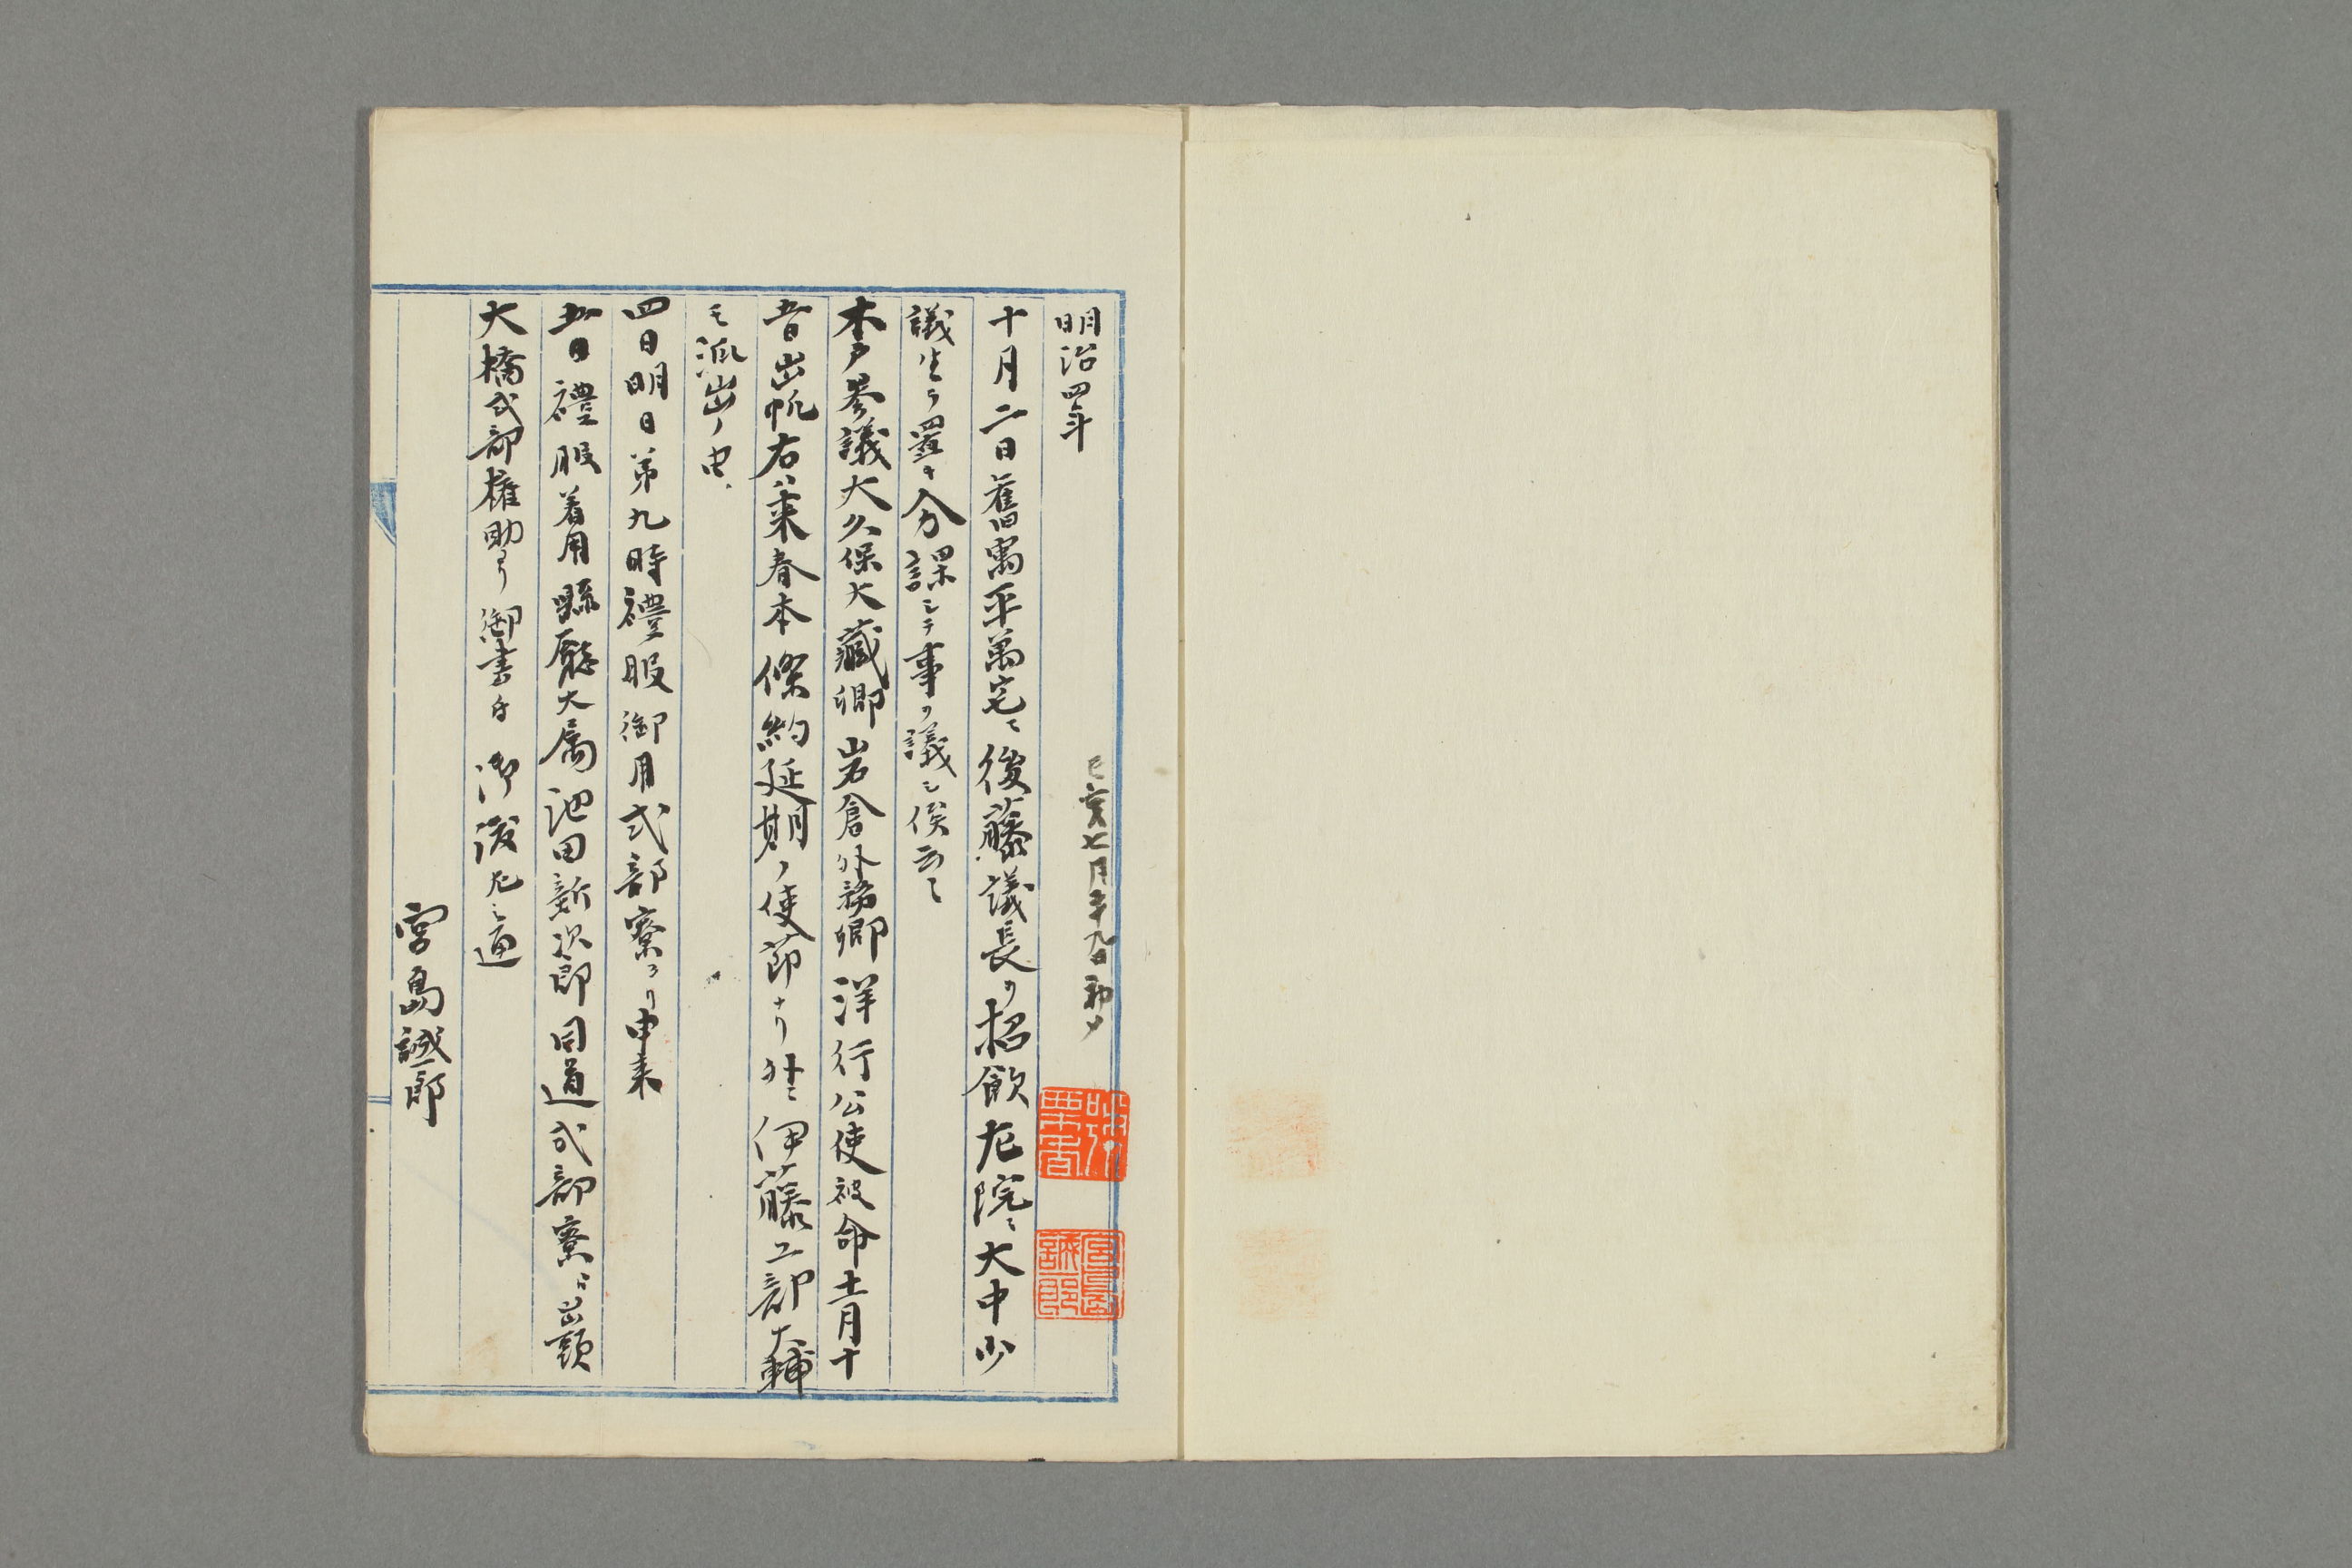 明治四年
己亥七月十九日初メ
十月二日舊寓平萬宅ニ後藤議長ヲ招飲左院ニ大中少
議生ヲ置キ分課シテ事ヲ議シ候云々
木戸参議大久保大藏卿岩倉外務卿洋行公使被命十一月十
五日出帆右ハ来春本條約延期ノ使節ナリ外ニ伊藤工部大輔
モ派出ノ由
四日明日第九時禮服御用式部寮ヨリ申来
五日禮服着用縣廳大属池田新次郎同道式部寮ニ出頭
大橋式部権助ヨリ御書付御渡左ニ通
宮島誠一郎
宮島誠郎